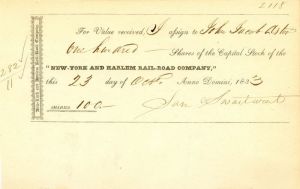 2118
For Value received, I assign to John Jacob Astor
One hundred Shares of the Capital Stock of the
"NEW-YORK AND HARLEM RAIL-ROAD COMPANY,"
this 23 day of Octo. Anno Domini, 1833
SHARES 100.
Sam Swartwout